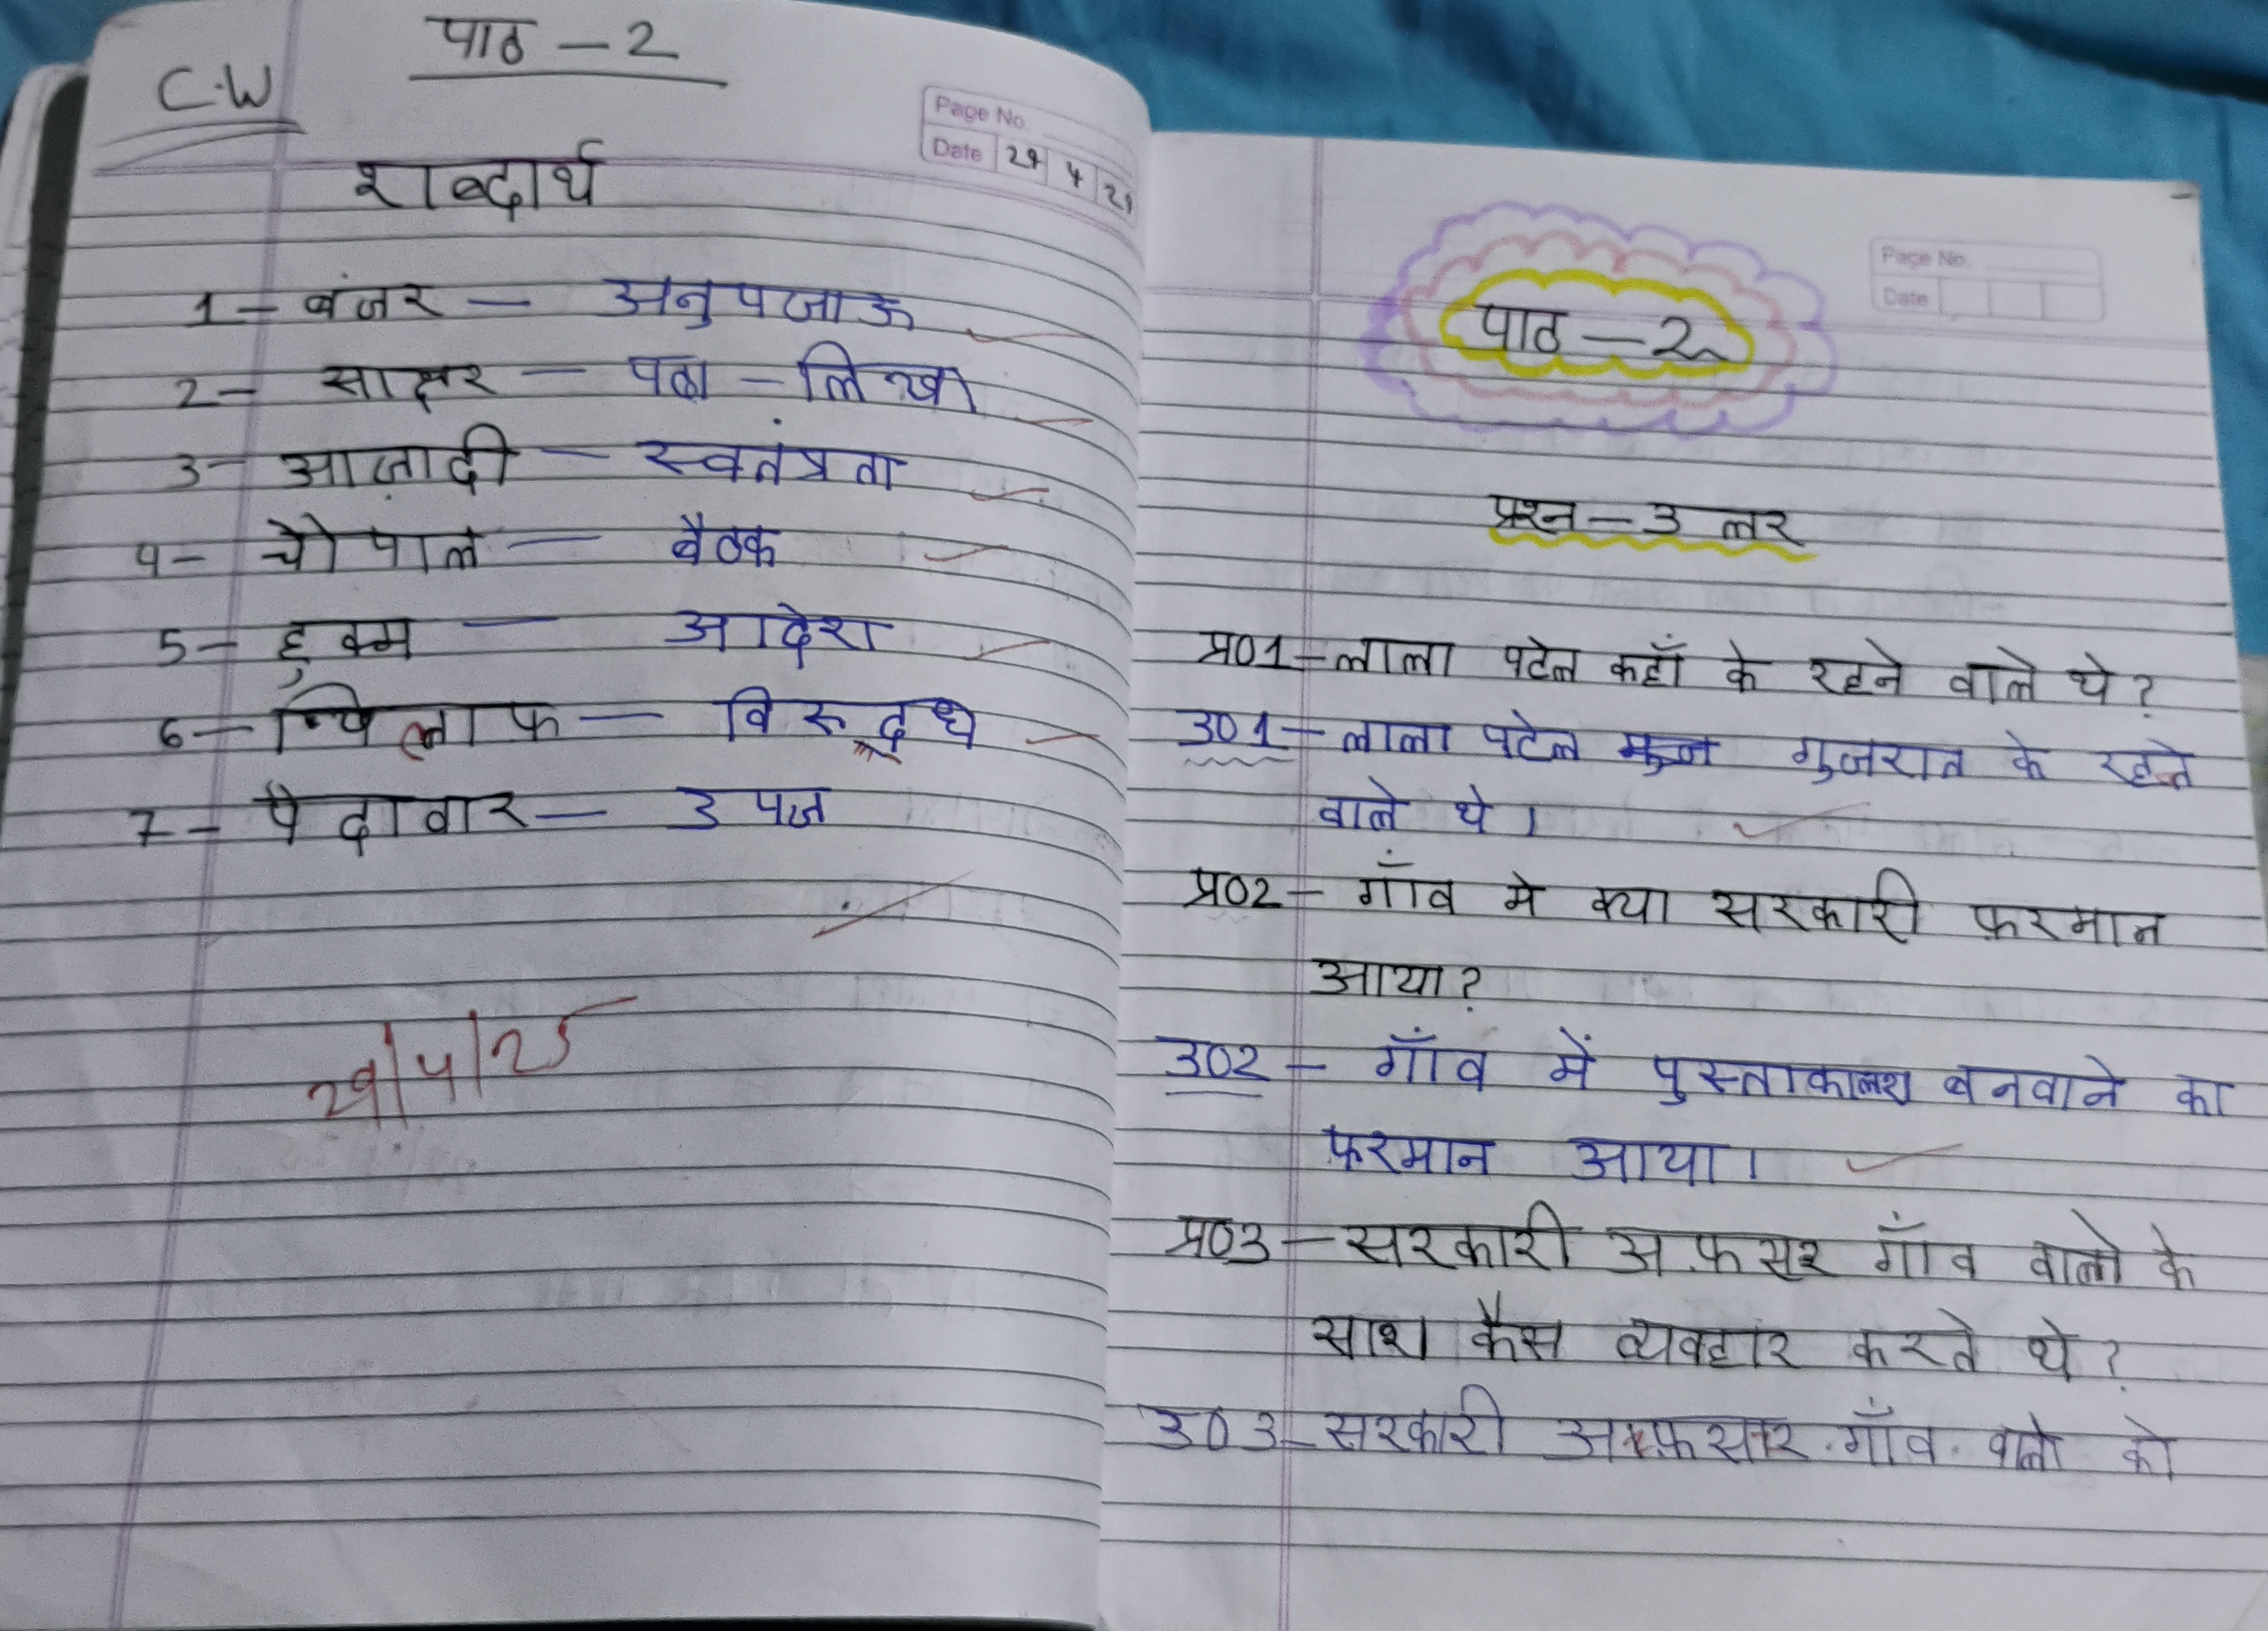 C.W
पाठ – 2
Page No.
Date 29 4 25
शब्दार्थ
1 – बंजर – अनुपजाऊ
2 – साक्षर – पढा – लिखा
3 – आज़ादी – स्वतंत्रता
4 – चौपाल – बैठक
5 – हुक्म – आदेश
6 – खिलाफ – विरूद्ध
7 – पैदावार – उपज
29/4/25
Page No.
Date
पाठ – 2
प्रश्न – उत्तर
प्र01 – लाला पटेल कहाँ के रहने वाले थे?
उ01 – लाला पटेल गुजरात के रहने
वाले थे।
प्र02 – गाँव मे क्या सरकारी फ़रमान
आया?
उ02 – गाँव में पुस्ताकालय बनवाने का
फ़रमान आया।
प्र03 – सरकारी अफ़सर गाँव वालो के
साथ कैस व्यवहार करते थे?
उ03 – सरकारी अफ़सर गाँव वालो को